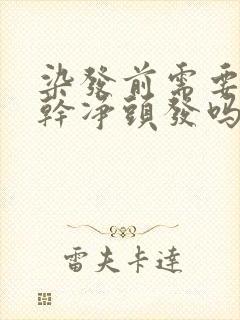 染發前需要
幹凈頭發吗
雷夫卡達